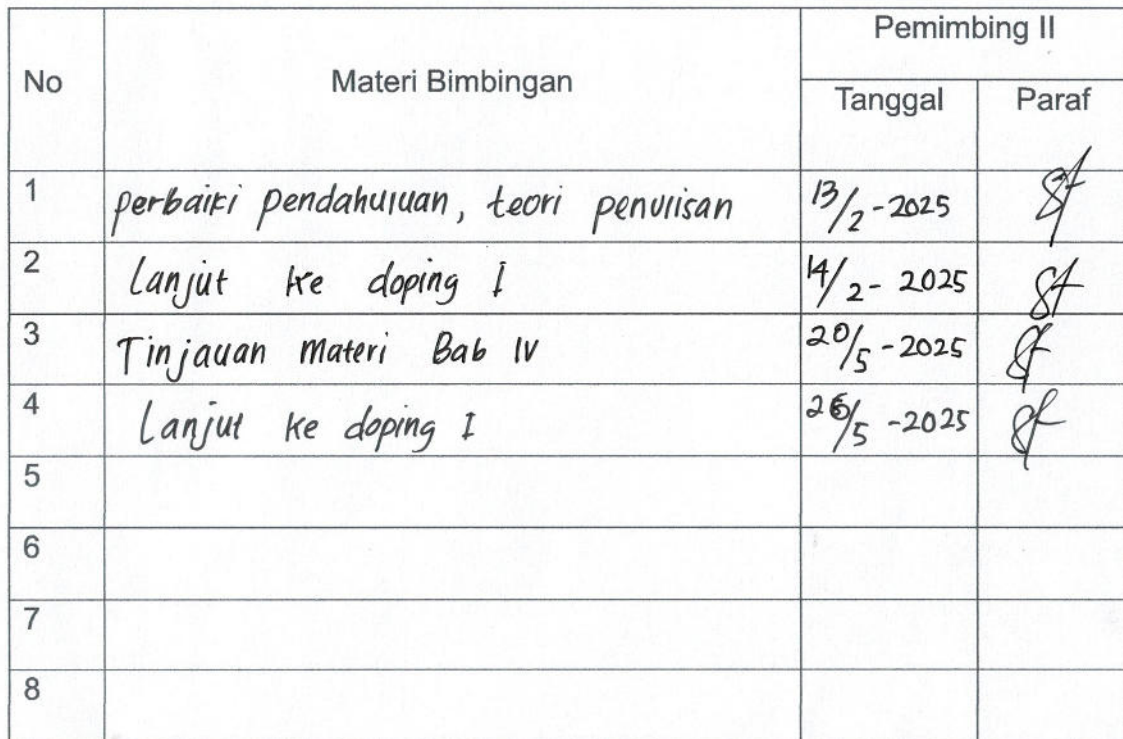 Pemimbing II
No Materi Bimbingan
Tanggal Paraf
1 perbaiki pendahuluan, teori penulisan 13/2-2025
2 Lanjut ke doping I 14/2- 2025
3 Tinjauan Materi Bab IV 20/5-2025
4 Lanjut ke doping I 26/5-2025
5
6
7
8